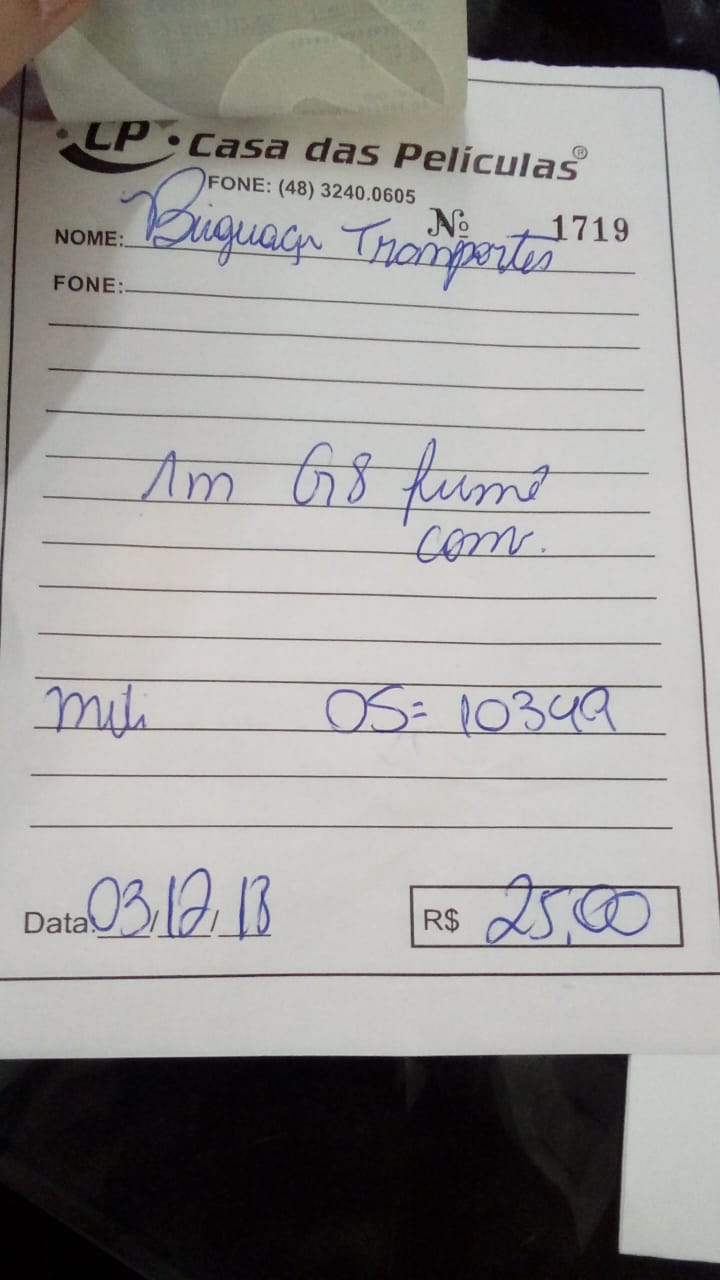 CP • Casa das Películas®
FONE: (48) 3240.0605
Nº 1719
NOME: Biguaçu Transportes
FONE:
1m G8 fumê
com.
OS= 10349
Data: 03/12/18 R$ 25,00